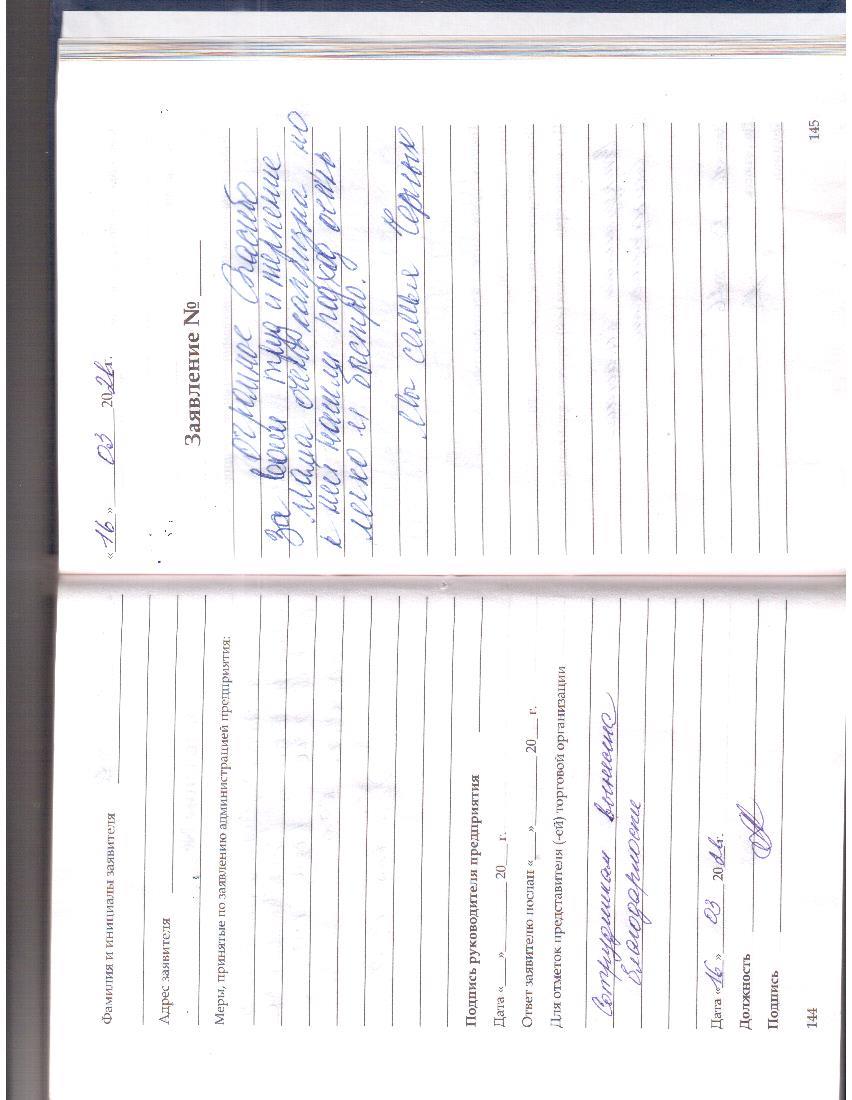 Фамилия и инициалы заявителя
Адрес заявителя
Меры, принятые по заявлению администрацией предприятия:
Подпись руководителя предприятия
Дата «___» ______ 20___ г.
Ответ заявителю послан «___» ______ 20___ г.
Для отметок представителя (-ей) торговой организации
Сотрудникам вынесена
благодарность
Дата «16» 03 20 г.
Должность
Подпись
144
«16» 03 20 г.
Заявление № ____
огромное спасибо
за ваш труд и терпение
мама очень но
к ней нашли подход очень
легко и быстро.
семья Черных
145